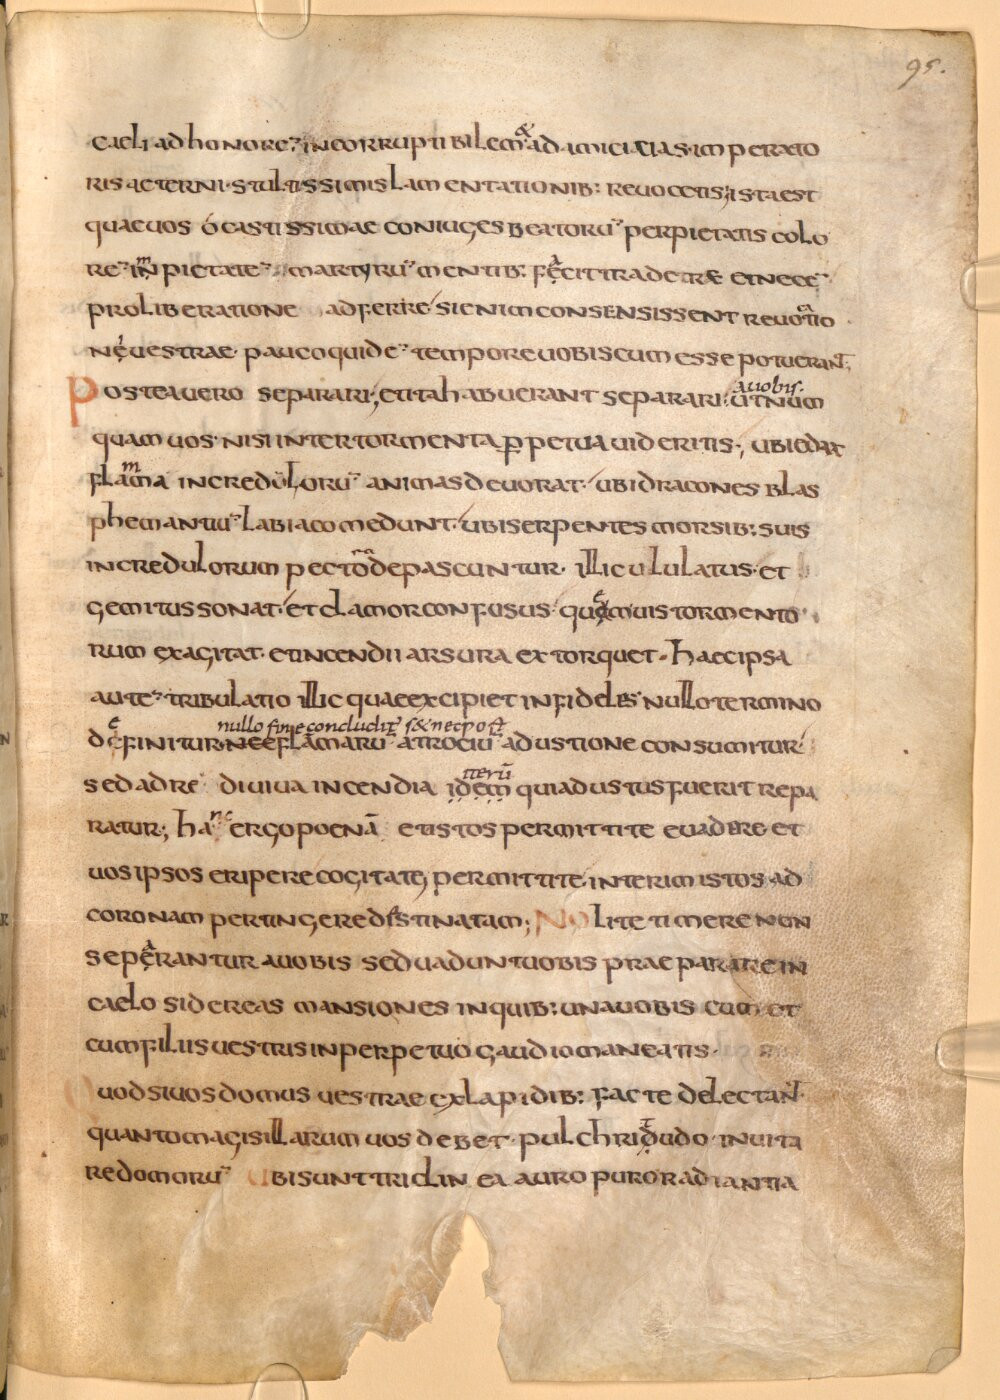 95.
caeli ad honorē incorruptibilem & ad amicicias imperato
ris aeterni stultissimis lamentationib: revocetis; ista est
quae vos ó castissimae coniuges beatorū perpietatis colo
rē inpietatē martyrū mentib: fecit tradere et nece
pro liberatione adferre si enim consensissent revotio
ne vestrae pauco quidē tempore vobiscum esse potuerant
Postea vero separari; et ita habuerant separari a vobis ut num
quam vos nisi inter tormenta ꝑpetua videritis; ubi edax
flamma incredulorū animas devorat ubi dracones blas
phemantiū labia comedunt ubi serpentes morsib: suis
incredulorum pectora depascuntur illic ululatus et
gemitus sonat et clamor confusus quem vis tormento
rum exagitat et incendii arsura extorquet haec ipsa
autē tribulatio illic quae excipiet infideles nullo termino
nullo fine concluditur sed nec post
definitur nee flāmarū atrociū adustione consumitur
sed ad re diviva incendia iterū idem qui adustus fuerit repa
ratur; hanc ergo poenā et istos permittite evadere et
vos ipsos eripere cogitate; permittite interim istos ad
coronam pertingere destinatam; Nolite timere non
seperantur a vobis sed vadunt vobis praeparare in
caelo sidereas mansiones in quib: una vobis cum et
cum filiis vestris in perpetuo gaudio maneatis
Quod si vos domus vestrae ex lapidib: factae delectant
quanto magis illarum vos debet pulchritudo invita
re domorū Ubi sunt triclinea auro puro radiantia